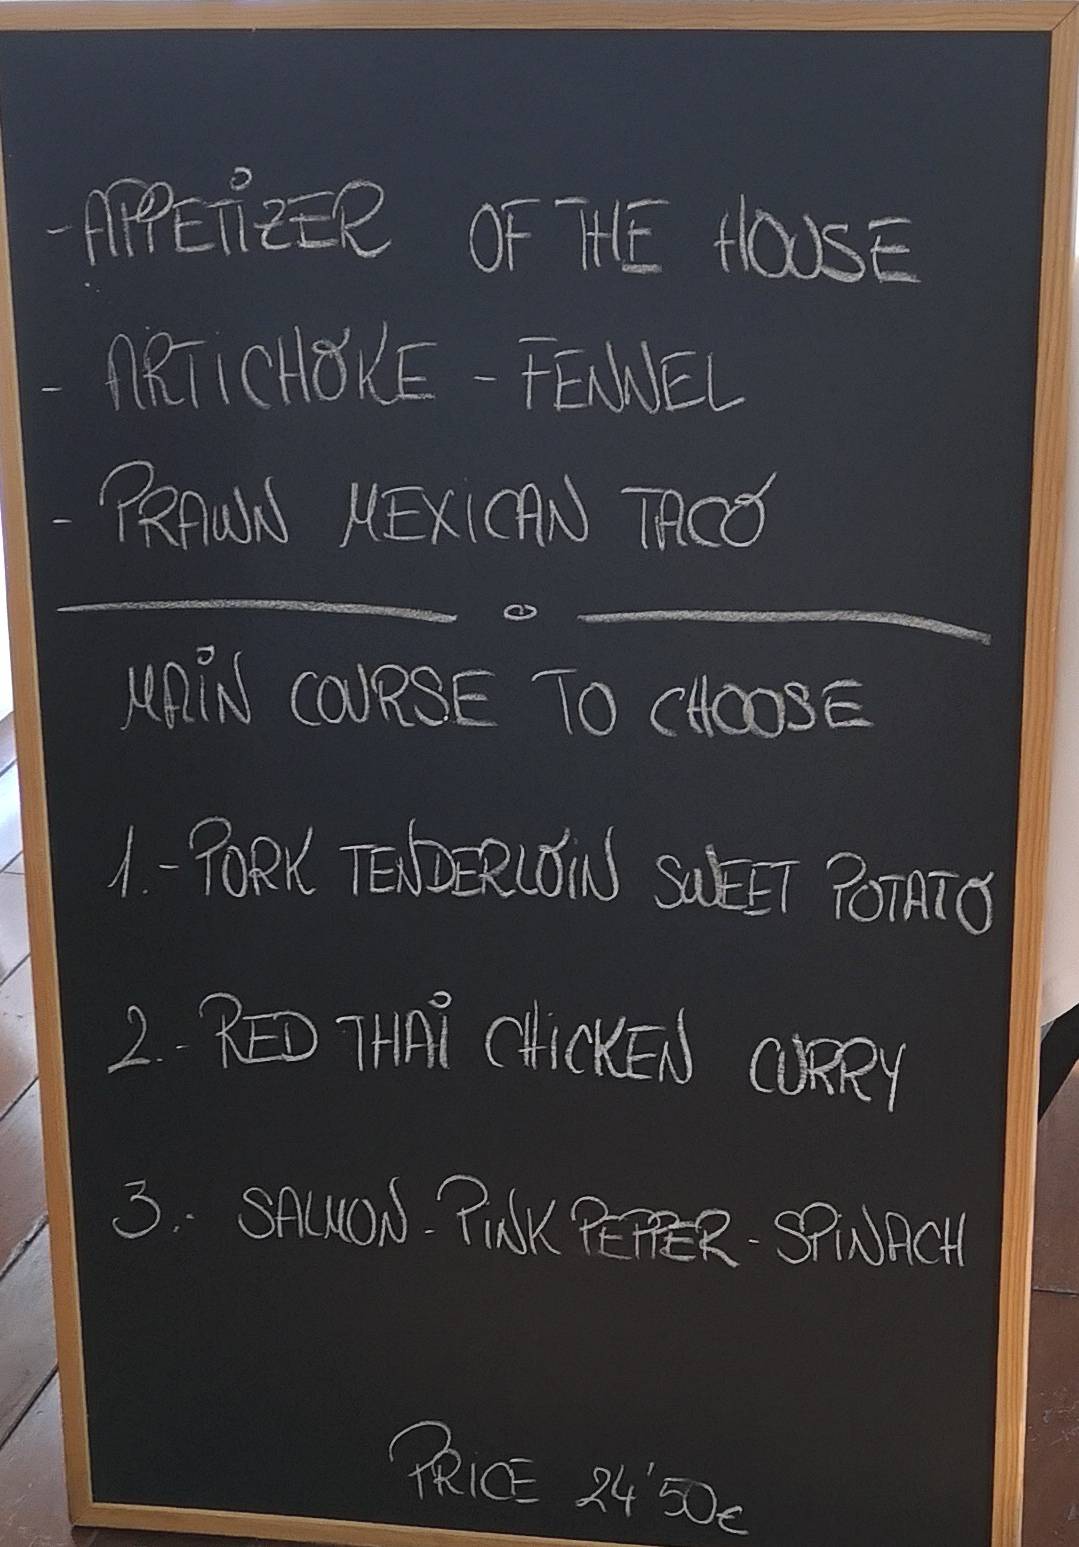 - APPETIZER OF THE HOUSE
- ARTICHOKE - FENNEL
- PRAWN MEXICAN TACO
MAIN COURSE TO CHOOSE
1.- PORK TENDERLOIN SWEET POTATO
2.- RED THAI CHICKEN CURRY
3.- SALMON - PINK PEPPER - SPINACH
PRICE 24'50€